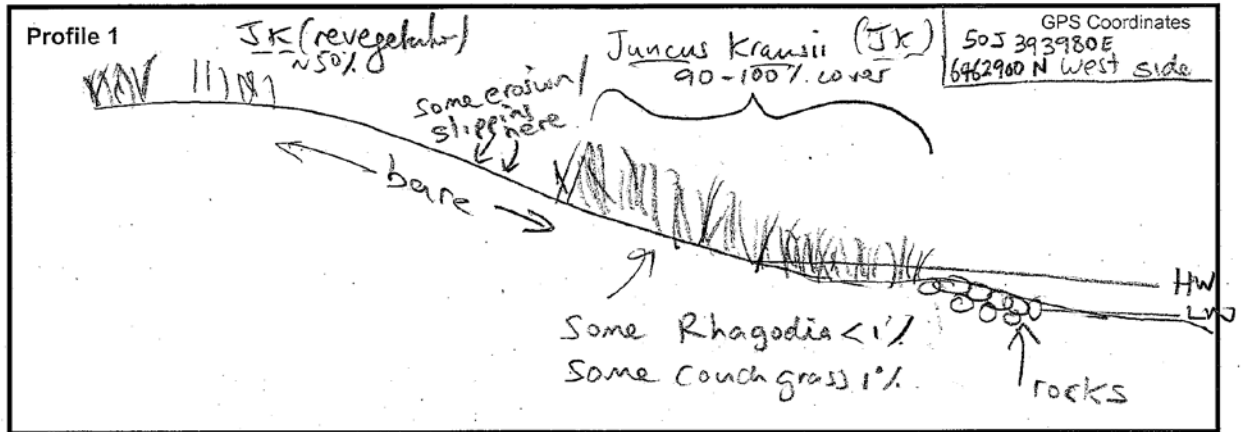 Profile 1
JK (revegetation)
~50%
Juncus Krausii (JK)
90-100% cover
GPS Coordinates
50J 393980E
6462900 N West side
some erosion/
slipping
here
bare
HW
LW
Some Rhagodia <1%
Some Couch grass 1%
rocks